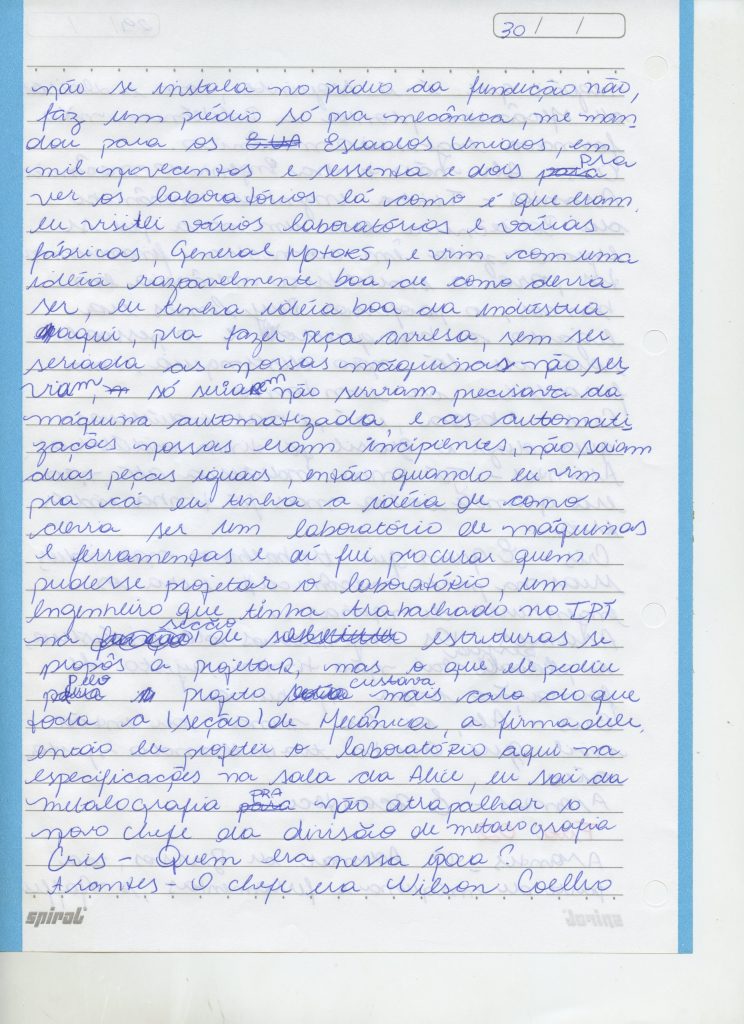 30 / /
não se instala no prédio da fundição não,
faz um prédio só pra mecânica, me man
dou para os EUA Estados Unidos, em
mil novecentos e sessenta e dois para pra
ver os laboratórios lá como é que eram,
eu visitei vários laboratórios e várias
fábricas, General Motors, e vim com uma
idéia razoavelmente boa de como devia
ser, eu tinha idéia boa da indústria
aqui, pra fazer peça avulsa, sem ser
seriada as nossas máquinas não ser
viam, só seriam não serviam precisava da
máquina automatizada, e as automati
zações nossas eram incipientes, não saiam
duas peças iguais, então quando eu vim
pra cá eu tinha a idéia de como
devia ser um laboratório de máquinas
e ferramentas e aí fui procurar quem
pudesse projetar o laboratório, um
engenheiro que tinha trabalhado no IPT
na secção de estruturas se
propôs a projetar, mas o que ele pediu
pelo projeto custava mais caro do que
toda a (seção) de Mecânica, a firma dele,
então eu projetei o laboratório aqui na
especificações na sala da Alice, eu saí da
metalografia para PRA não atrapalhar o
novo chefe da divisão de metalografia
Cris - Quem era nessa época?
Arantes - O chefe era Wilson Coelho
spiral